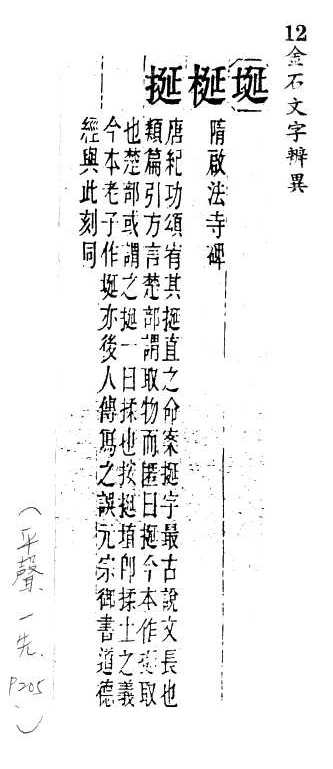 12金石文字辨異
埏梴挻
隋啟法寺碑
唐紀功頌宥其挻直之命案挻字最古說文長也
類篇引方言楚部謂取物而匿曰挻今本作挻取
也楚部或謂之挻一曰揉也按挻埴卽揉土之義
今本老子作埏亦後人傳寫之誤元宗御書道德
經與此刻同
(平聲、一先、P205)